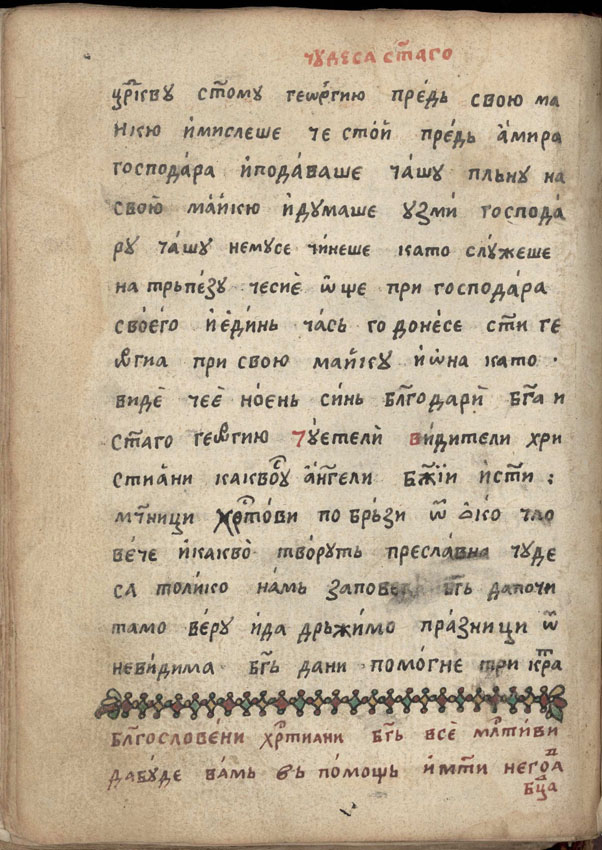 чудеса ст҃аго
цр҃ікву ст҃ому геѡргию прѣдь свою ма
икю и҆мислеше че стои҆ прѣдь а҆мира
господа́ра и҆пода́ваше ча́шу пльну на
свою҆ ма́йкю и҆думаше узми́ господа́
ру ча́шу немусе чи́неше като слу́жеше
на трьпе́зу чесие̑ ѿ ще при господа́ра
свое́го и҆е҆ди́нь ча́сь го донесе ст҃и ге
ѡ҆гиа при свою майку и҆ѡ҆на като ·
виде̑ чеѐ но́ень си́нь бл҃годари҆ бг҃а и
ст҃аго геѡ҆гию ви́дители хри
стиа́ни какво а҆нгели бж҃їи и҆ст҃и :
мч҃ници хрⷭ҇тови по брьзи ѿ око чло
ве́че и҆какво̀ тво́руть пресла́вна чуде
са толи́ко на́мь запове бг҃ь дапочи
тамо ве́ру и҆да дрьжи́мо пра́зници ѿ
неви́дима бг҃ь дани помо́гне три кр҃та
бл҃гослове́ни хрⷭ҇тиани бг҃ь все̑ млⷭ҇ти́ви
дабу́де ва́мь въ по́мощь и҆ млⷭ҇ти него́
бц҃а